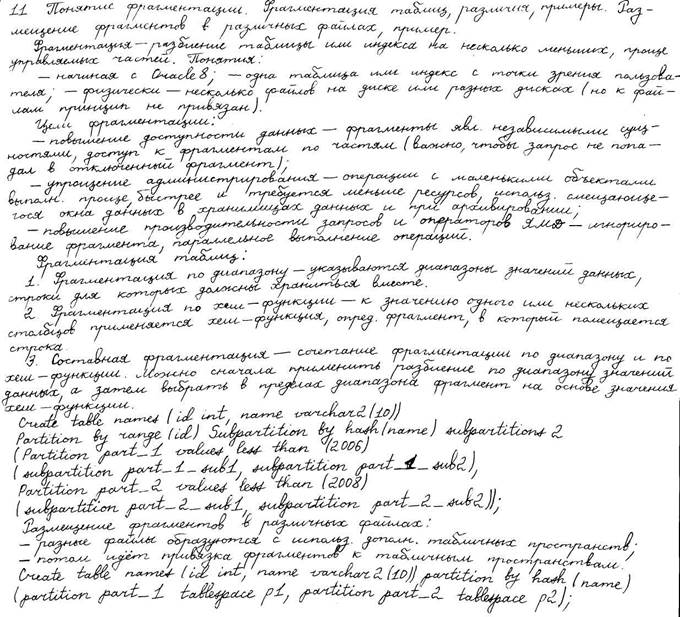 11 Понятие фрагментации. Фрагментация таблиц, различия, примеры. Раз-
мещение фрагментов в различных файлах, пример.
Фрагментация – разбиение таблицы или индекса на несколько меньших, проще
управляемых частей. Понятия:
– начиная с Oracle 8; – одна таблица или индекс с точки зрения пользова-
теля; – физически – несколько файлов на диске или разных дисках (но к фай-
лам принцип не привязан).
Цели фрагментации:
– повышение доступности данных – фрагменты явл. независимыми сущ-
ностями, доступ к фрагментам по частям (важно, чтобы запрос не попа-
дал в отключенный фрагмент);
– упрощение администрирования – операции с маленькими объектами
выполн. проще, быстрее и требуется меньше ресурсов, использ. смещающе-
гося окна данных в хранилищах данных и при архивировании;
– повышение производительности запросов и операторов ЯМД – игнориро-
вание фрагмента, параллельное выполнение операций.
Фрагментация таблиц:
1. Фрагментация по диапазону – указываются диапазоны значений данных,
строки для которых должны храниться вместе.
2. Фрагментация по хеш-функции – к значению одного или нескольких
столбцов применяется хеш-функция, опред. фрагмент, в который помещается
строка.
3. Составная фрагментация – сочетание фрагментации по диапазону и по
хеш-функции. Можно сначала применить разбиение по диапазону значений
данных, а затем выбрать в пределах диапазона фрагмент на основе значения
хеш-функции.
Create table names (id int, name varchar2(10))
Partition by range (id) Subpartition by hash (name) subpartitions 2
(Partition part_1 values less than (2006)
(subpartition part_1_sub1, subpartition part_1_sub2),
Partition part_2 values less than (2008)
(subpartition part_2_sub1, subpartition part_2_sub2));
Размещение фрагментов в различных файлах:
– разные файлы образуются с использ. дополн. табличных пространств;
– потом идёт привязка фрагментов к табличным пространствам.
Create table names (id int, name varchar2(10)) partition by hash (name)
(partition part_1 tablespace p1, partition part_2 tablespace p2);